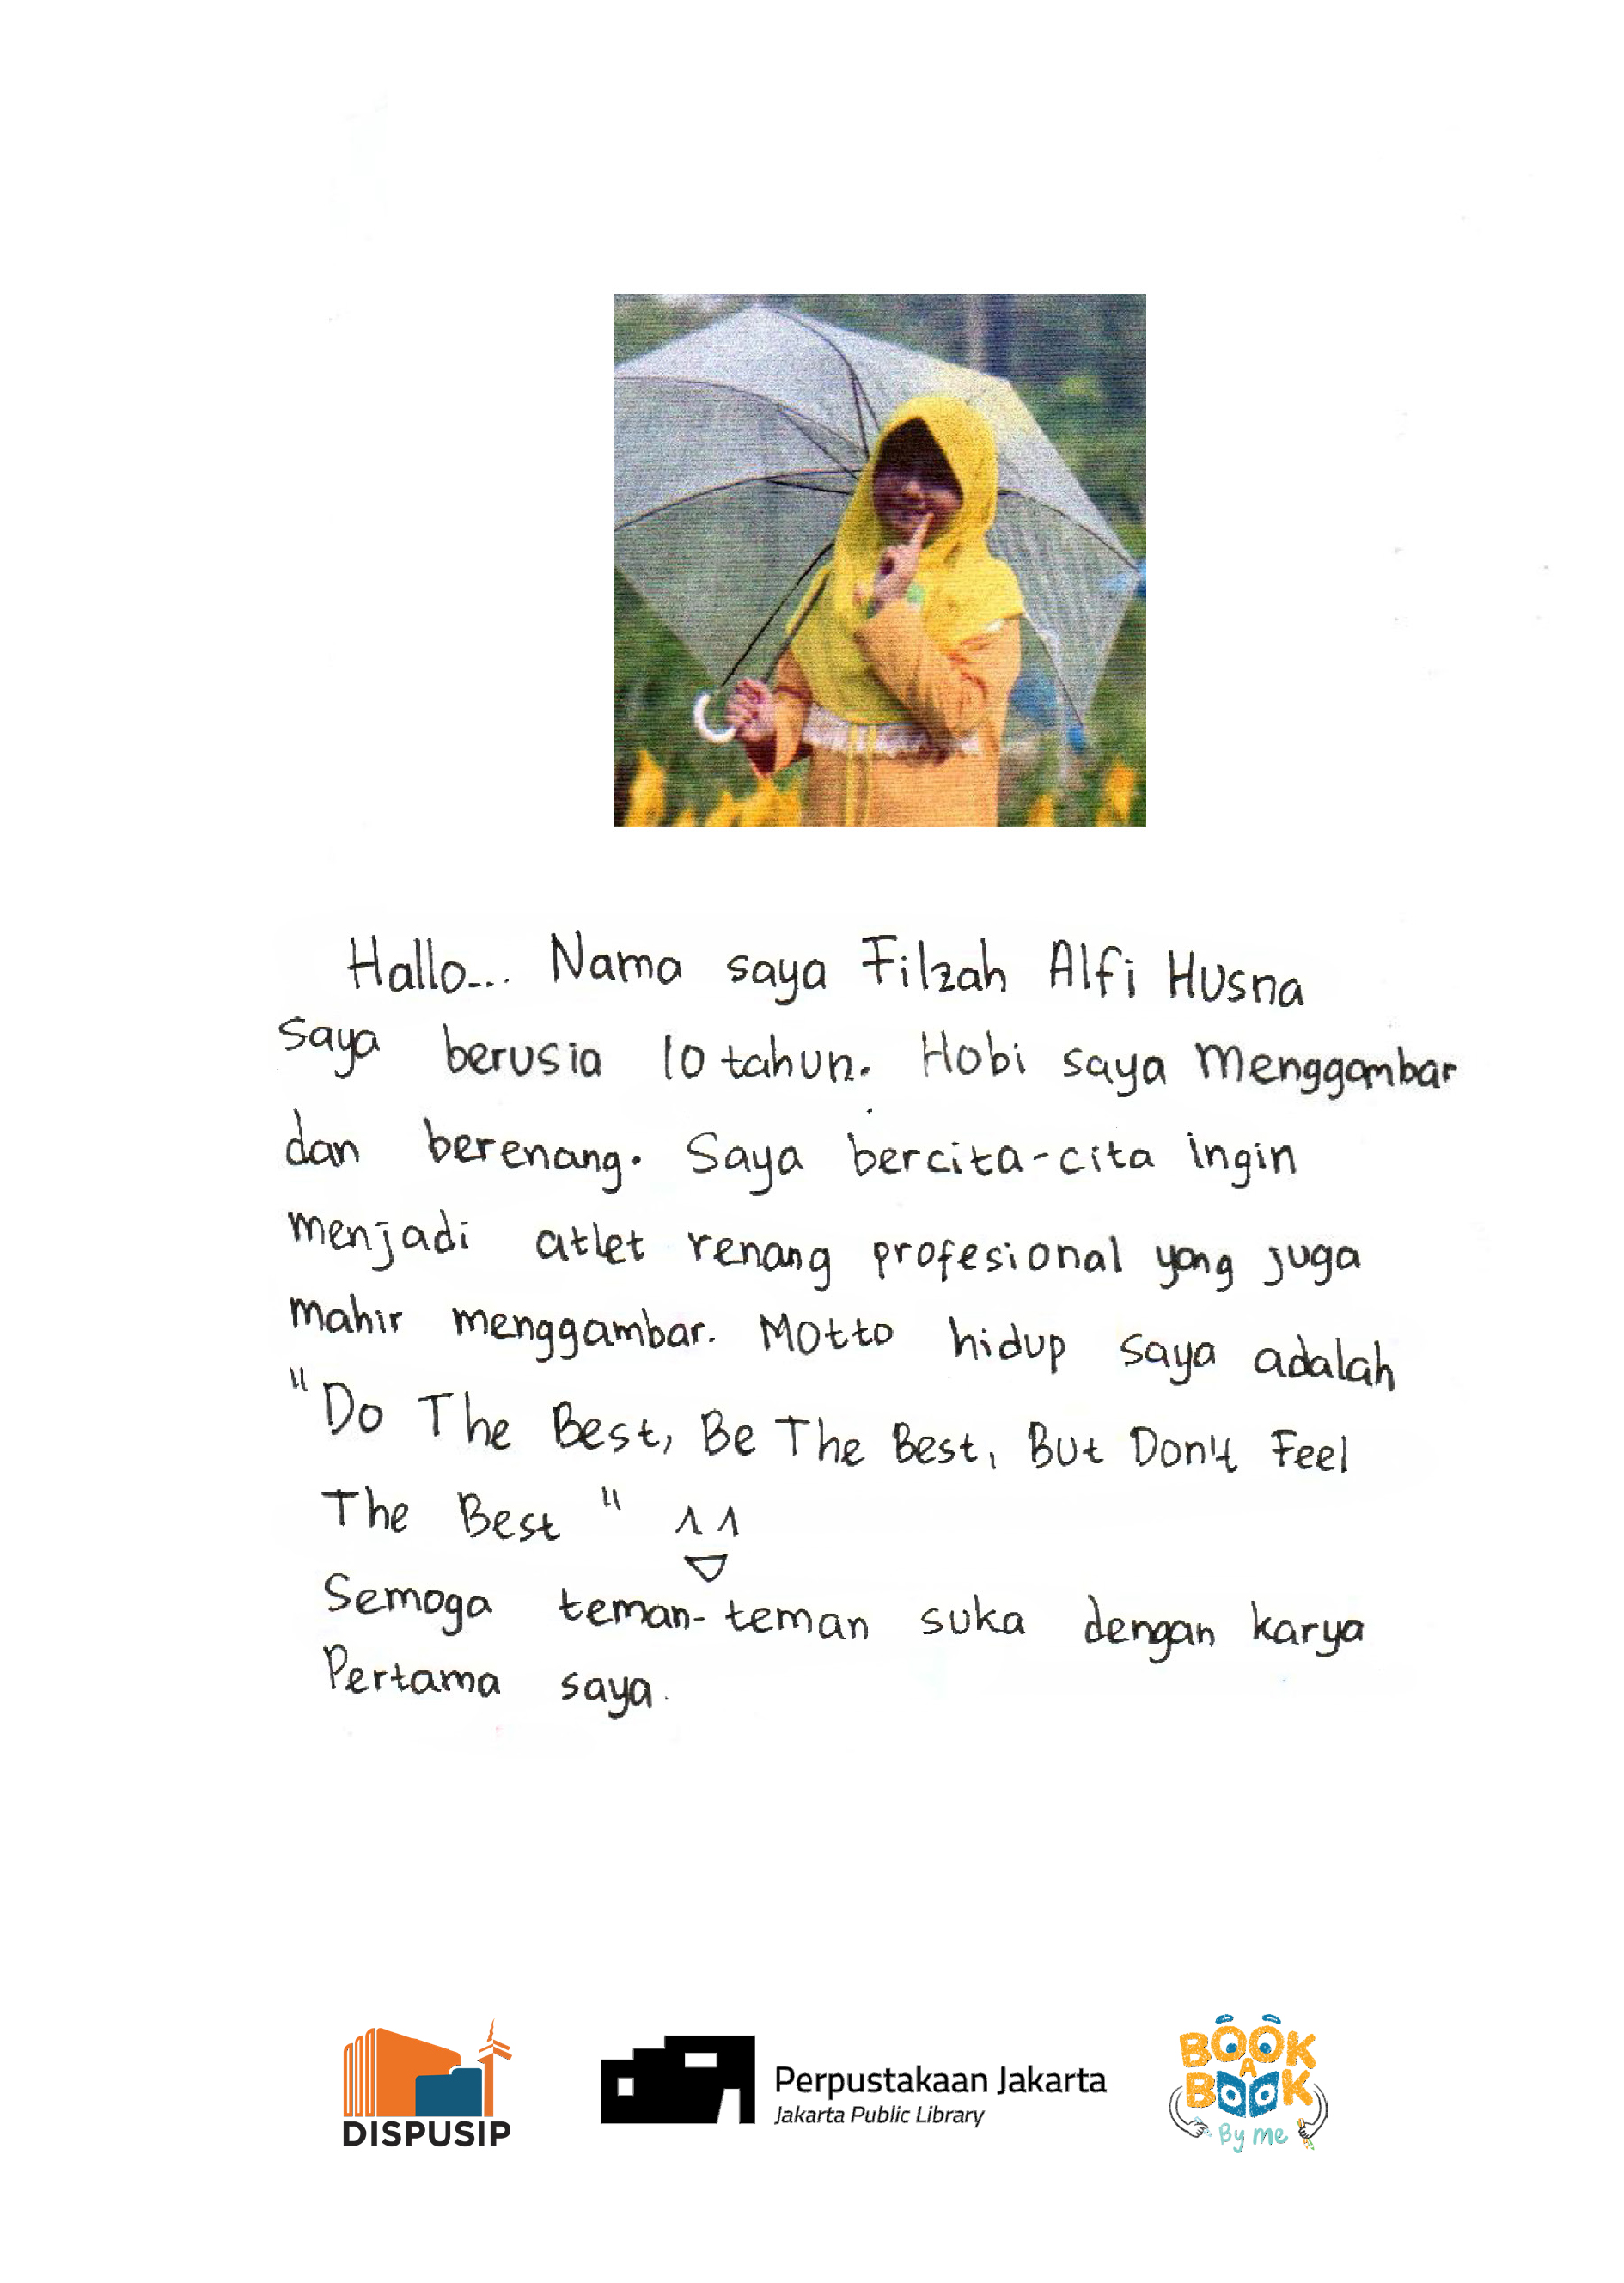 Hallo... Nama saya Filzah Alfi Husna
saya berusia 10 tahun. Hobi saya menggambar
dan berenang. Saya bercita-cita ingin
menjadi atlet renang profesional yang juga
mahir menggambar. Motto hidup saya adalah
"Do The Best, Be The Best, But Don't Feel
The Best"
Semoga teman-teman suka dengan karya
Pertama saya.
DISPUSIP
Perpustakaan Jakarta
Jakarta Public Library
BOOK
A
BOOK
By me